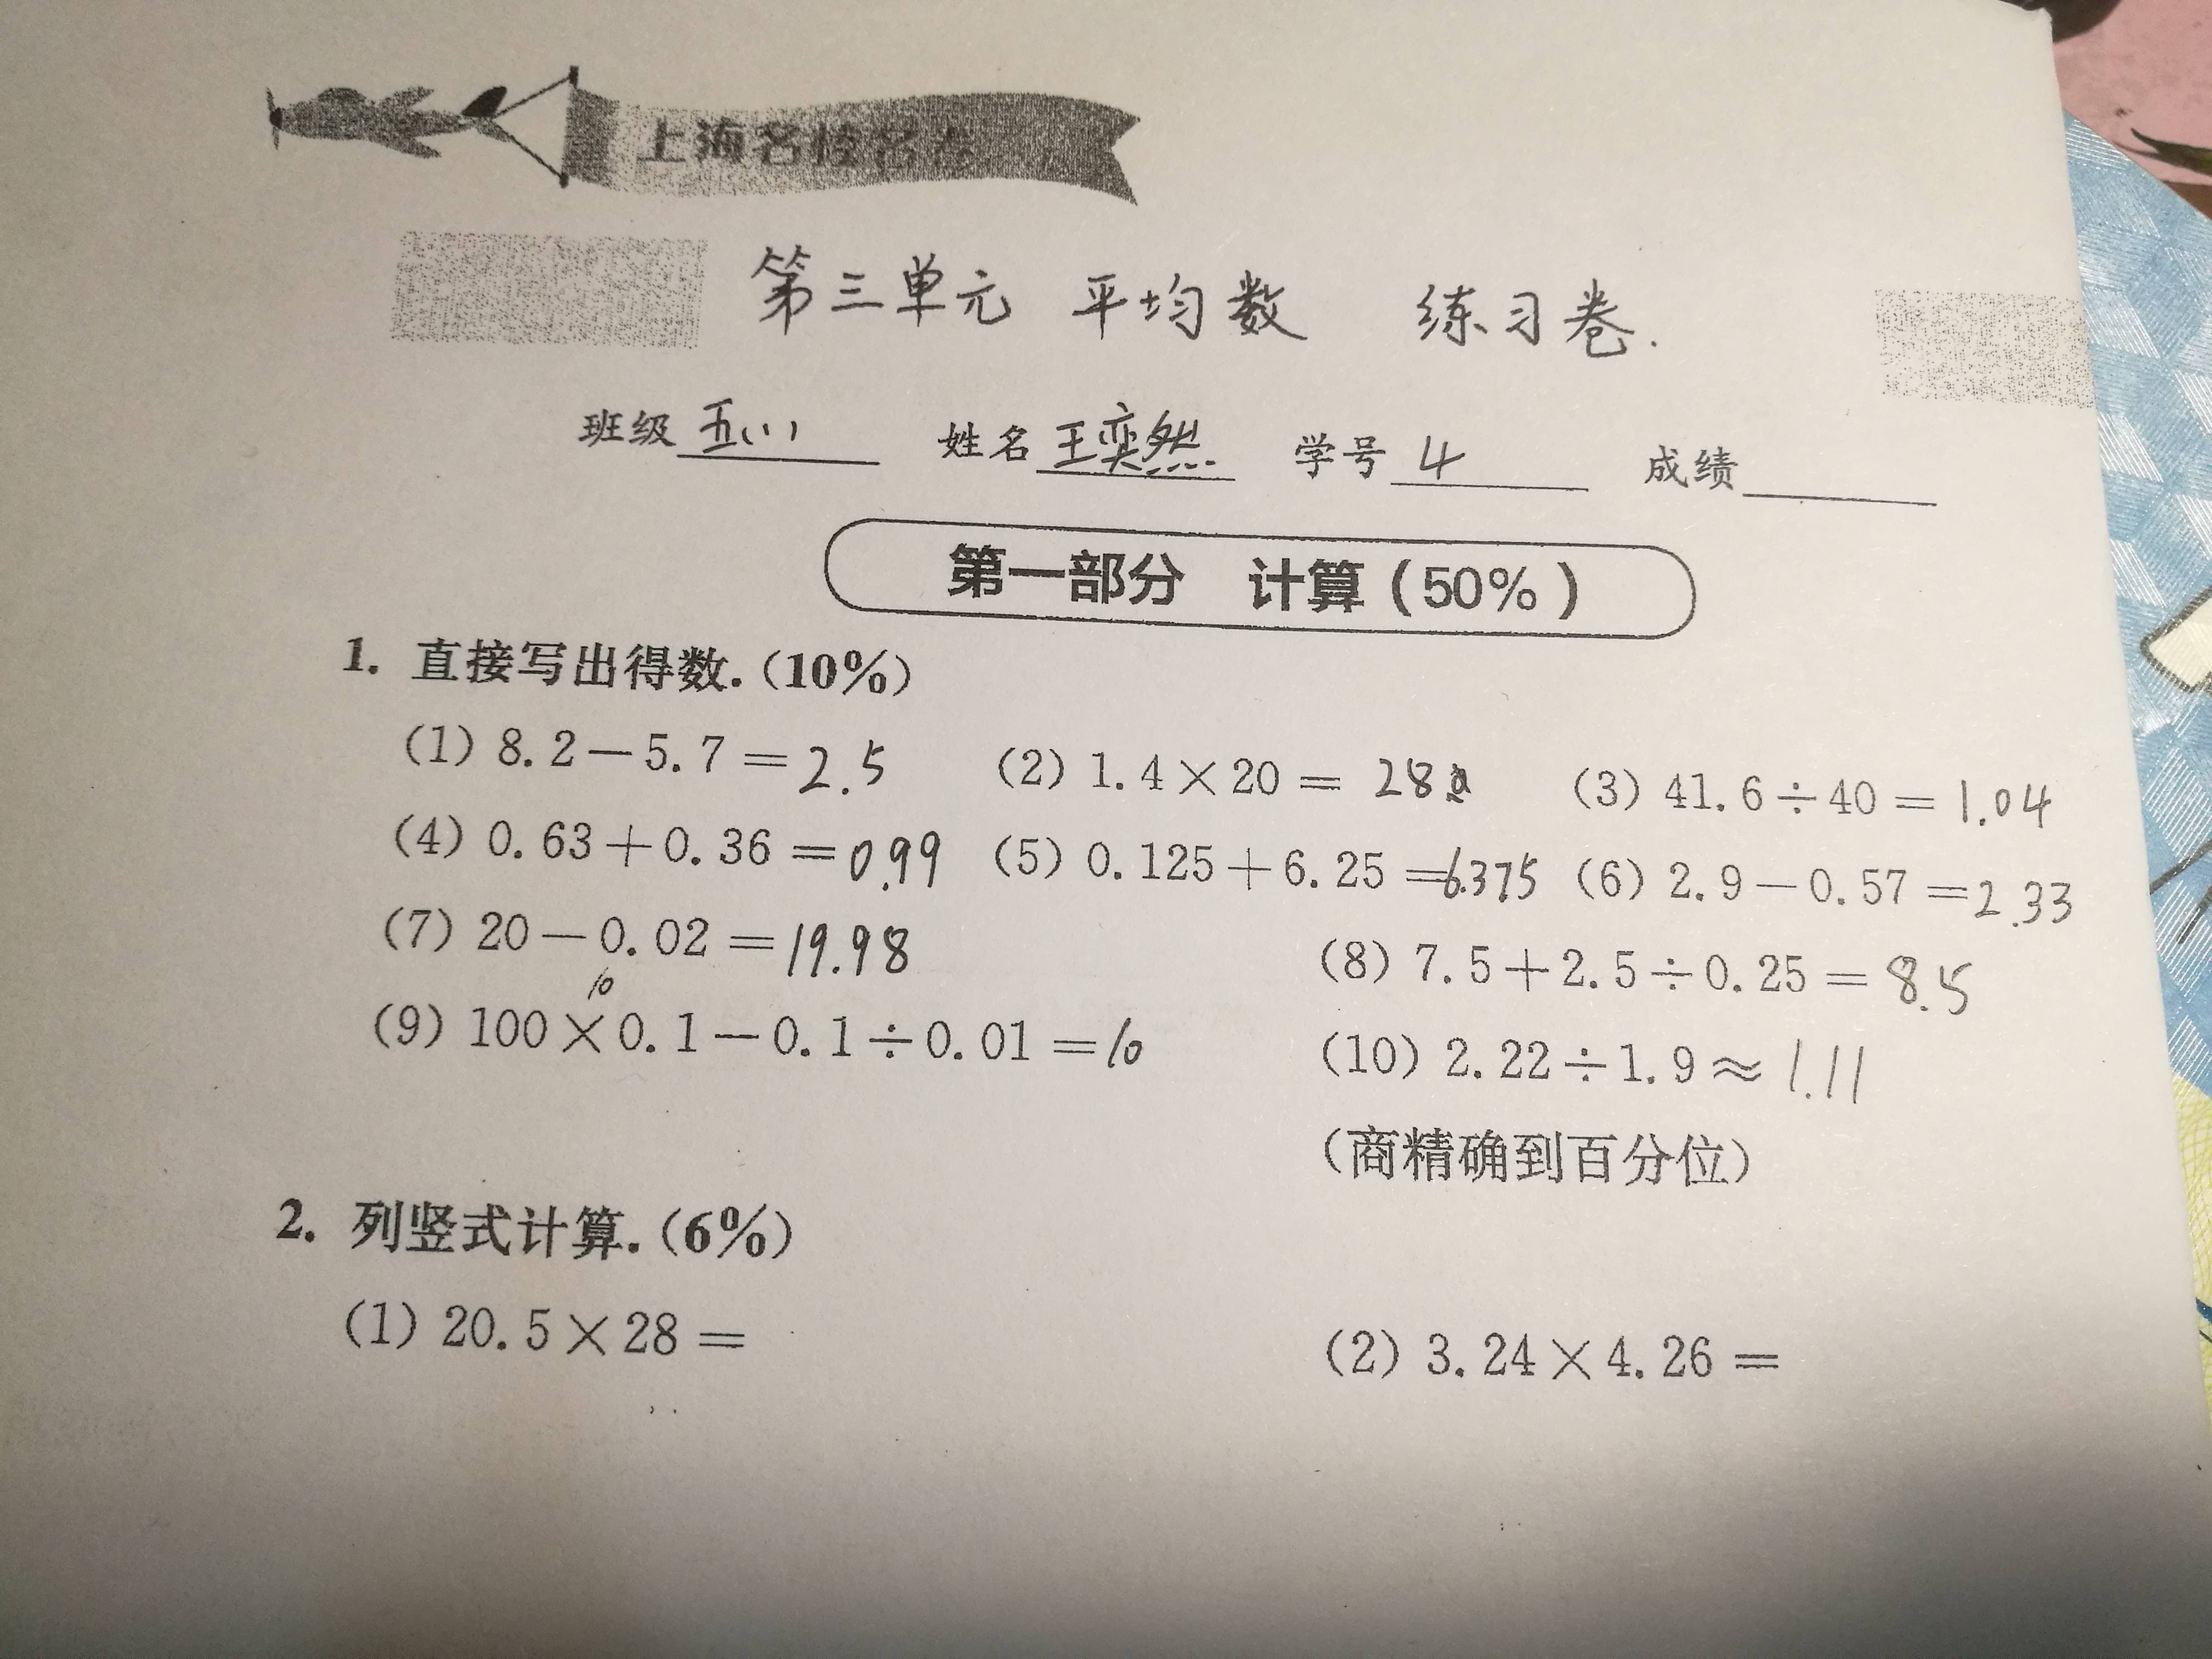 上海名校名卷
第三单元 平均数 练习卷.
班级 五(1) 姓名 王奕然 学号 4 成绩
第一部分 计算(50%)
1. 直接写出得数.(10%)
(1) 8.2-5.7=2.5 (2) 1.4×20= 28 (3) 41.6÷40=1.04
(4) 0.63+0.36=0.99 (5) 0.125+6.25=6.375 (6) 2.9-0.57=2.33
(7) 20-0.02=19.98 (8) 7.5+2.5÷0.25=8.5
10
(9) 100×0.1-0.1÷0.01=10 (10) 2.22÷1.9≈1.11
(商精确到百分位)
2. 列竖式计算.(6%)
(1) 20.5×28= (2) 3.24×4.26=